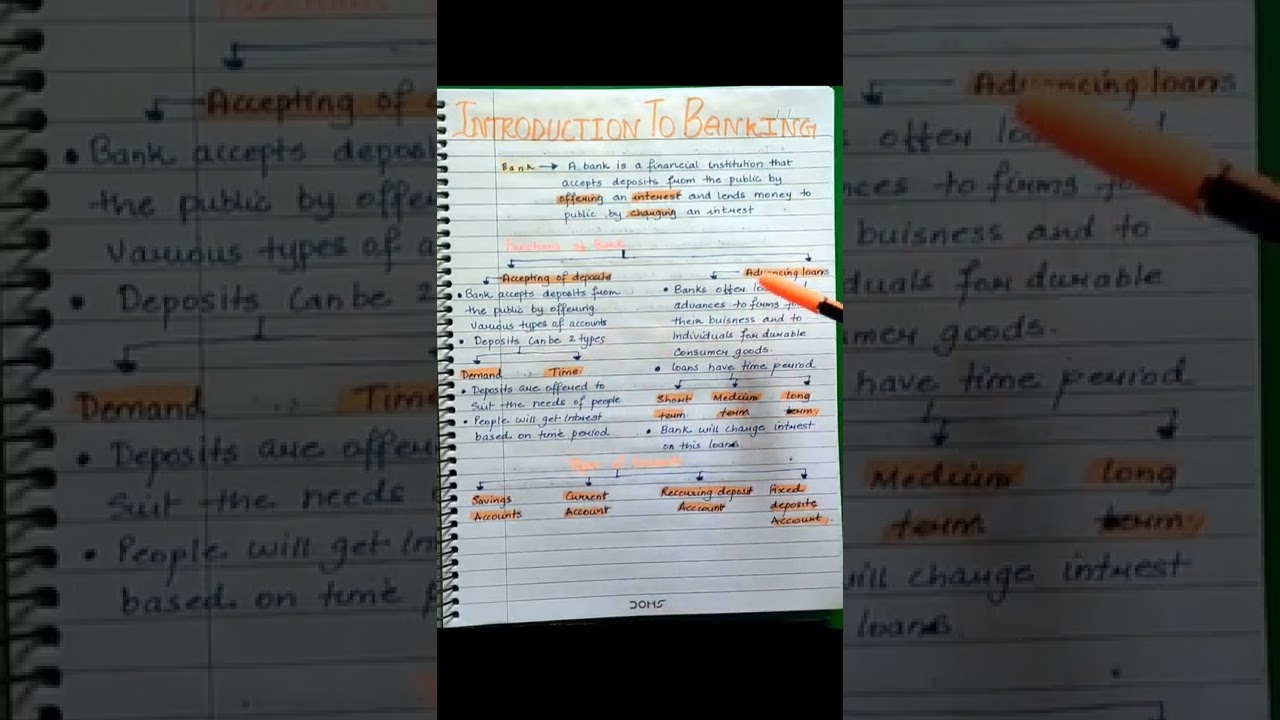 INTRODUCTION TO BANKING
Bank → A bank is a financial institution that
accepts deposits from the public by
offering an interest and lends money to
public by charging an intrest
Functions of Bank
Accepting of deposits
• Bank accepts deposits from
the public by offering
Various types of accounts
• Deposits can be 2 types
Demand Time
• Deposits are offered to
suit the needs of people
• People will get Intrest
based on time period
Advancing loans
• Banks offer
advances to firms
their buisness and to
Individuals for durable
Consumer goods.
• loans have time period
Short Medium long
term term term
• Bank will charge intrest
on this loans
Savings Current Reccuring deposit Fixed
Accounts Account Account deposits
Account
DOMS